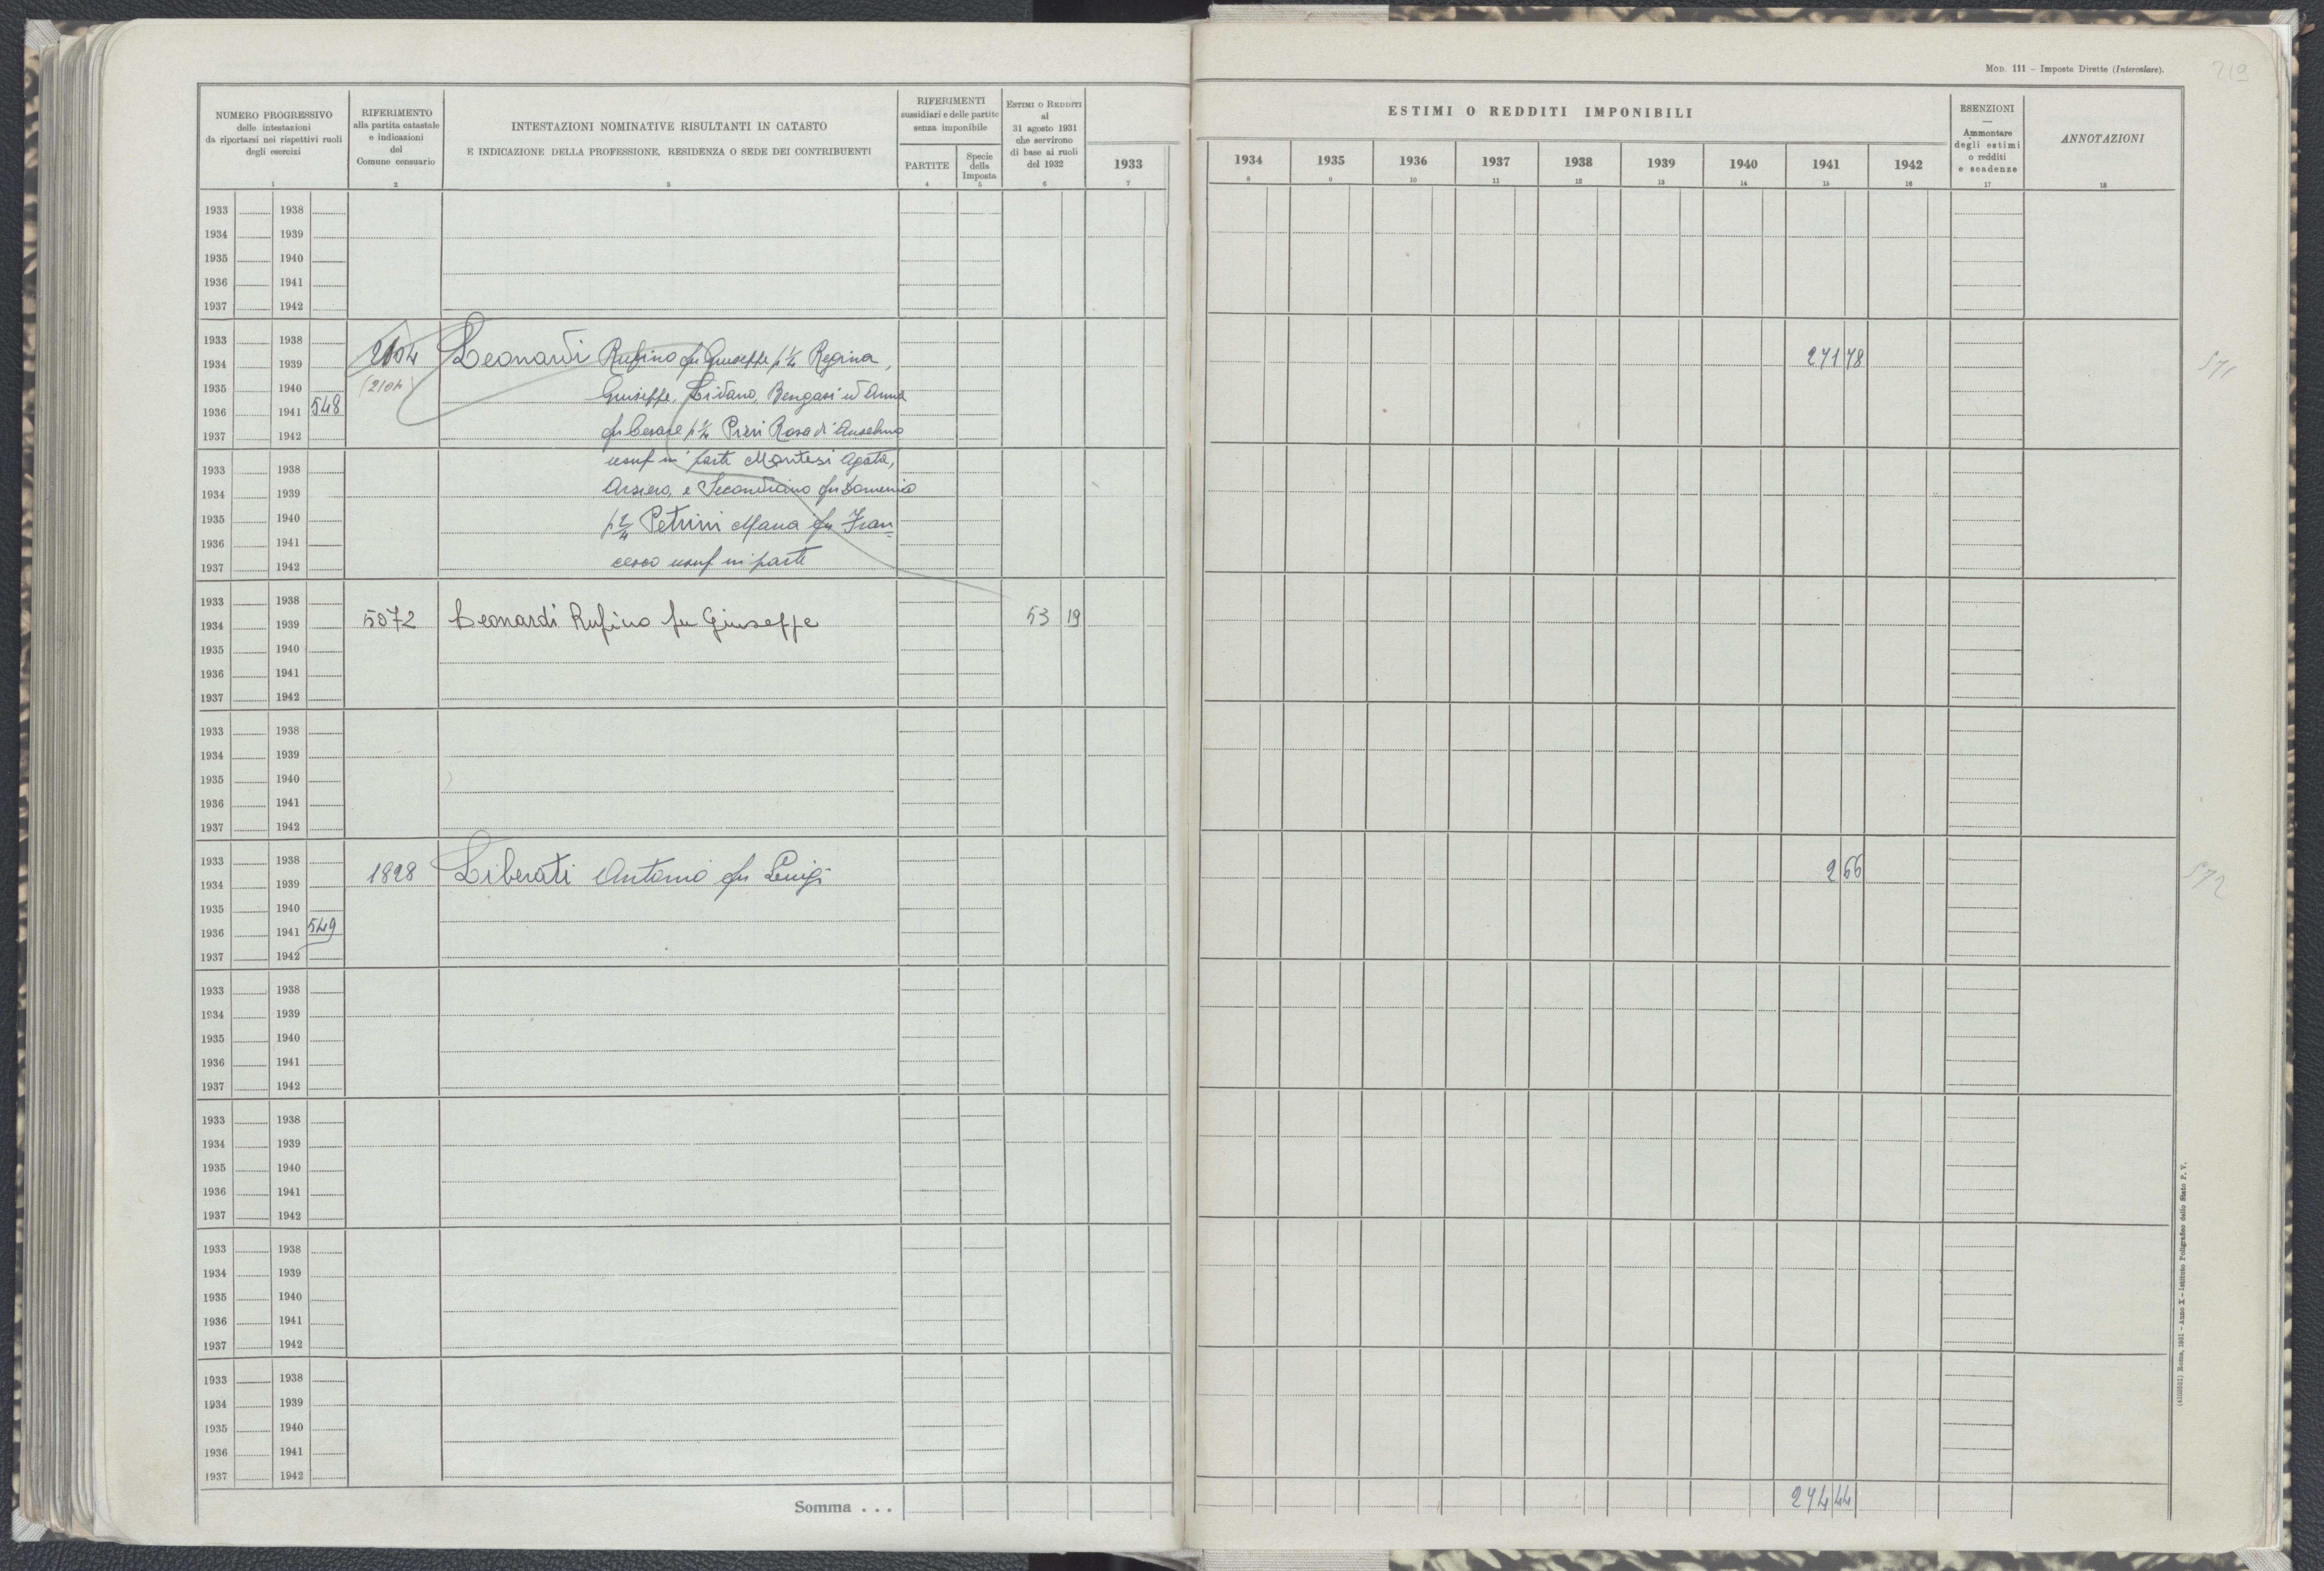 Mod. 111 – Imposte Dirette (Intercalare).
219
NUMERO PROGRESSIVO
delle intestazioni
da riportarsi nei rispettivi ruoli
degli esercizi
1
RIFERIMENTO
alla partita catastale
e indicazioni
del
Comune censuario
2
INTESTAZIONI NOMINATIVE RISULTANTI IN CATASTO
E INDICAZIONE DELLA PROFESSIONE, RESIDENZA O SEDE DEI CONTRIBUENTI
3
RIFERIMENTI
sussidiari e delle partite
senza imponibile
PARTITE
4
Specie
della
Imposta
5
Estimi o Redditi
al
31 agosto 1931
che servirono
di base ai ruoli
del 1932
6
ESTIMI O REDDITI IMPONIBILI
1933 1934 1935 1936 1937 1938 1939 1940 1941 1942
7 8 9 10 11 12 13 14 15 16
ESENZIONI
—
Ammontare
degli estimi
o redditi
e scadenze
17
ANNOTAZIONI
18
1933 1938
1934 1939
1935 1940
1936 1941
1937 1942
1933 1938
1934 1939 2104 Leonardi Rufino fu Giuseppe p 1/4 Regina, 271 78 571
1935 1940 (2104) Giuseppe, Livano, Bengasi ed Anna
1936 1941 548
1937 1942 fu Cesare p 1/4 Pieri Rosa di Anselmo
usuf in parte Montesi Agata,
1933 1938
1934 1939 Arsiero, e Secondiano fu Domenico
1935 1940 p 2/4 Petrini Maria fu Fran=
1936 1941
1937 1942 cesco usuf in parte
1933 1938
1934 1939 5072 Leonardi Rufino fu Giuseppe 53 19
1935 1940
1936 1941
1937 1942
1933 1938
1934 1939
1935 1940
1936 1941
1937 1942
1933 1938
1934 1939 1828 Liberati Antonio fu Luigi 2 66 572
1935 1940
1936 1941 549
1937 1942
1933 1938
1934 1939
1935 1940
1936 1941
1937 1942
1933 1938
1934 1939
1935 1940
1936 1941
1937 1942
1933 1938
1934 1939
1935 1940
1936 1941
1937 1942
1933 1938
1934 1939
1935 1940
1936 1941
1937 1942
Somma . . . 274 44
(4103521) Roma, 1931 – Anno X – Istituto Poligrafico dello Stato P. V.